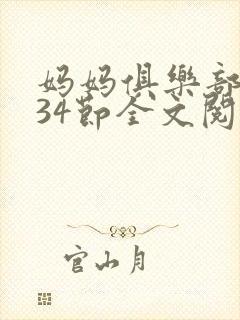 妈妈俱樂部
34節全文閱
官山月